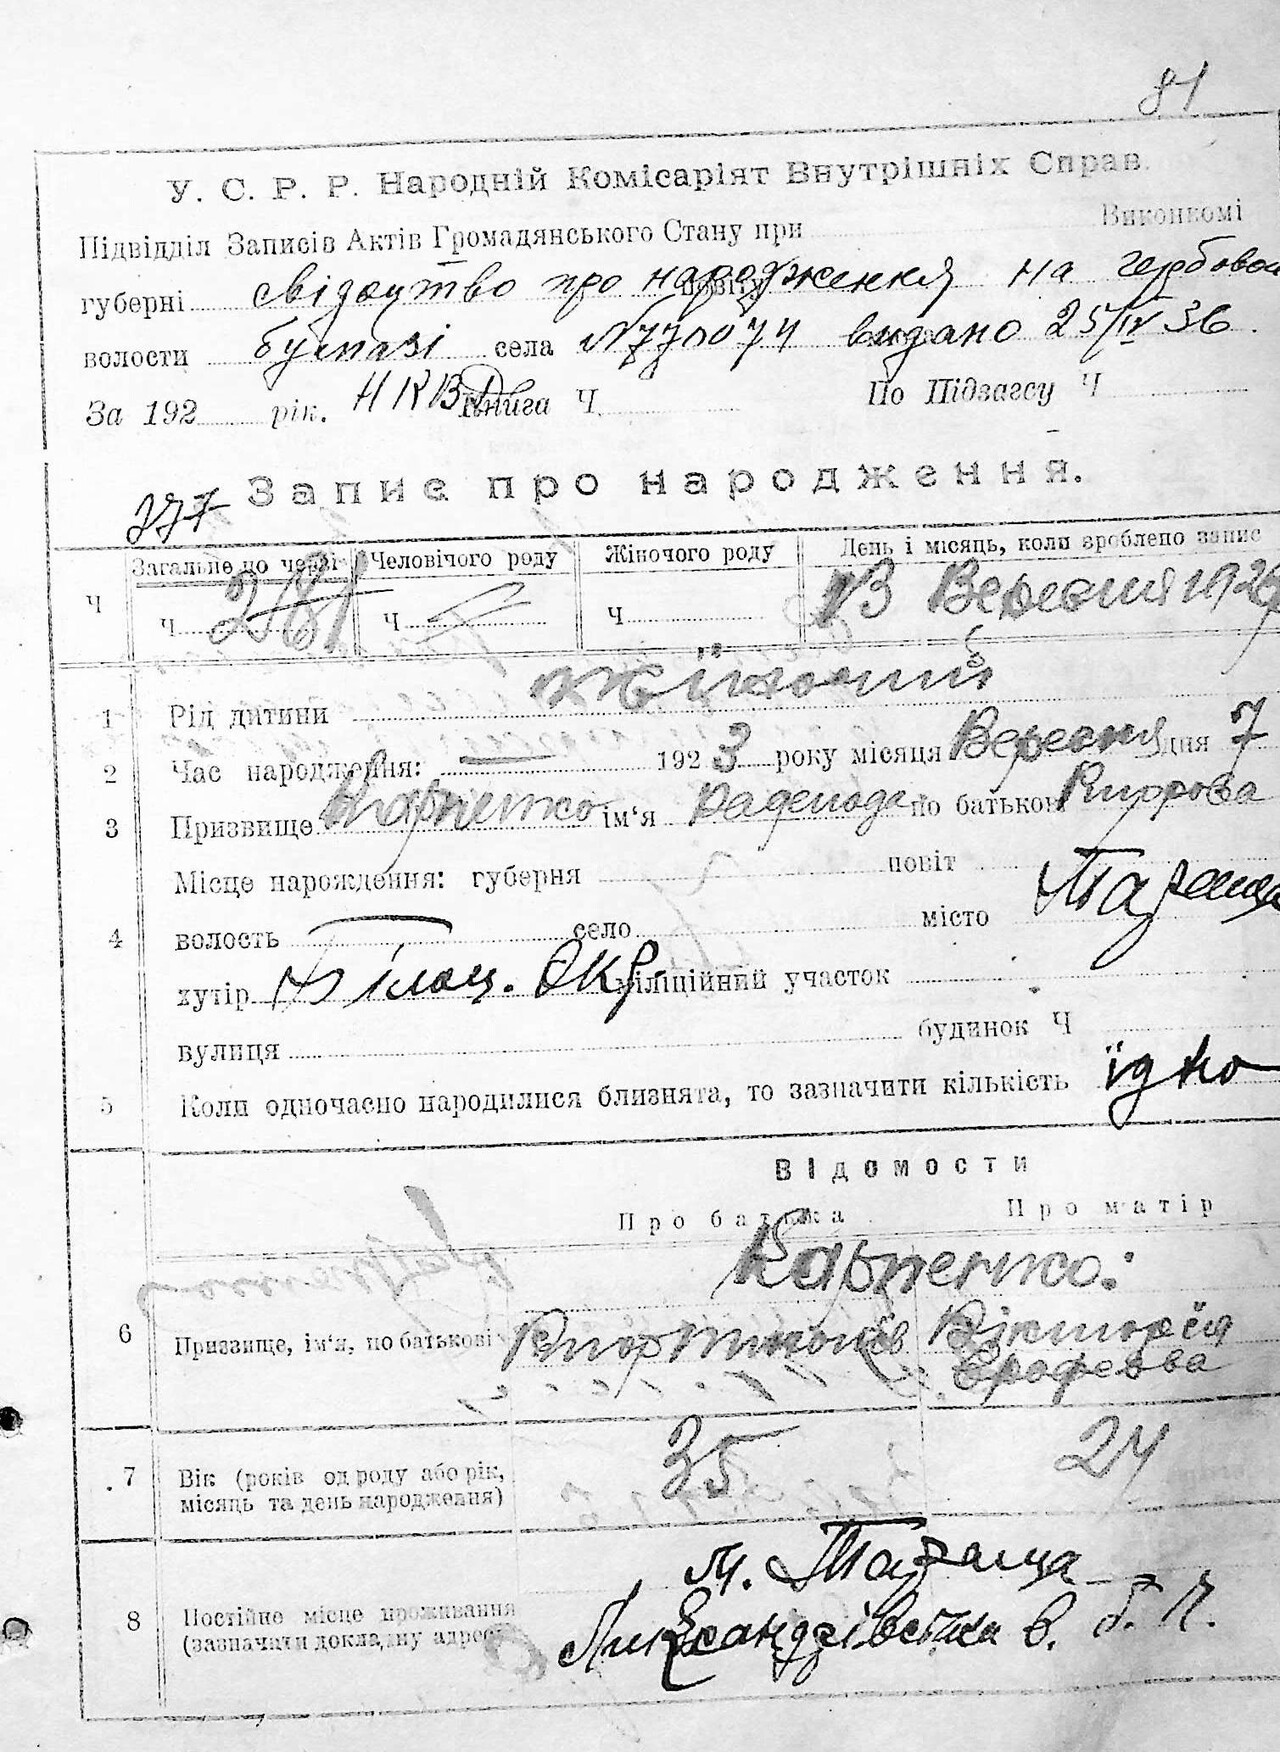 81
У. С. Р. Р. Народній Комісаріят Внутрішніх Справ.
Підвідділ Записів Актів Громадянського Стану при Виконкомі
губерні свідоцтво про народження на гербовой
волости бумазі села №770074 видано 25/IV 36.
За 192 рік. НКВД Книга Ч По Підзагсу Ч
377 Запис про народження.
Загальне по черзі Человічого роду Жіночого роду День і місяць, коли зроблено запис
Ч Ч 281 Ч Ч 13 Вересня 192
1 Рід дитини жіночий
2 Час народження: 1923 року місяця Вересня дня 7
3 Призвище Карпенко ім'я по батькові
Місце нарождення: губерня повіт
4 волость село місто Тараща
хутір Білоц. Окр. міліційний участок
вулиця будинок Ч
5 Коли одночасно народилися близнята, то зазначити кількість їдно
Відомости
Про батька Про матір
Карпенко:
6 Призвище, ім'я, по батькові Вікторія
Ерофеєва
7 Вік (років од роду або рік, місяць та день народження) 35 24
м. Тараща
8 Постійне місце проживання
(зазначати докладну адресу) в. б. №.